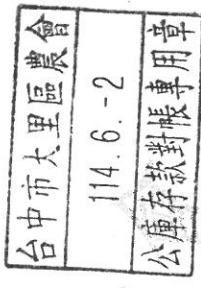 台中市大里區農會
114.6.-2
公庫存款對帳專用章